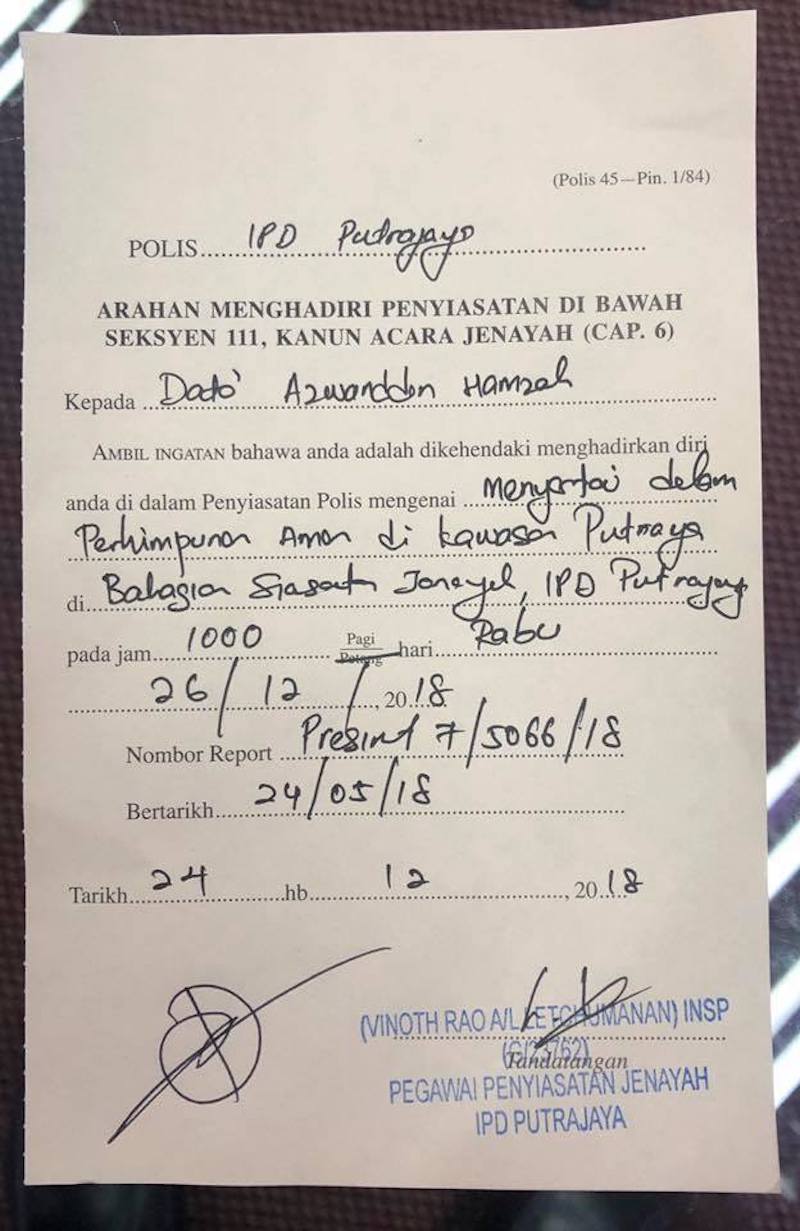 (Polis 45—Pin. 1/84)
POLIS IPD Putrajaya
ARAHAN MENGHADIRI PENYIASATAN DI BAWAH
SEKSYEN 111, KANUN ACARA JENAYAH (CAP. 6)
Kepada Dato' Azwanddin Hamzah
AMBIL INGATAN bahawa anda adalah dikehendaki menghadirkan diri
anda di dalam Penyiasatan Polis mengenai Menyertai dalam
Perhimpunan Aman di kawasan Putrajaya
di Bahagian Siasatan Jenayah, IPD Putrajaya
pada jam 1000 Pagi Petang hari Rabu
26/12/, 2018
Nombor Report Presint 7/5066/18
Bertarikh 24/05/18
Tarikh 24 hb 12, 2018
(VINOTH RAO A/L LETCHUMANAN) INSP
(G/23762)
Tandatangan
PEGAWAI PENYIASATAN JENAYAH
IPD PUTRAJAYA